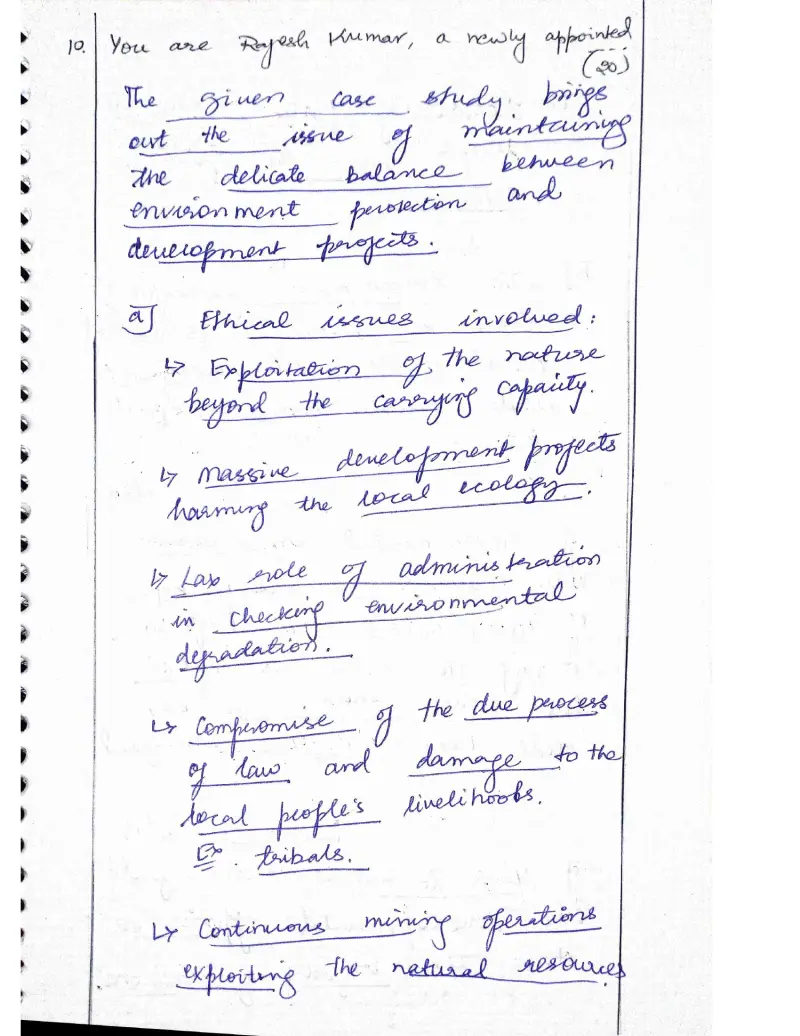 10. You are Rajesh Kumar, a newly appointed
(20)
The given case study brings
out the issue of maintaining
the delicate balance between
environment protection and
development projects.
a] Ethical issues involved:
↳ Exploitation of the nature
beyond the carrying capacity.
↳ Massive development projects
harming the local ecology.
↳ Lax role of administration
in checking environmental
degradation.
↳ Compromise of the due process
of law and damage to the
local people's livelihoods.
Ex. tribals.
↳ Continuous mining operations
exploiting the natural resources